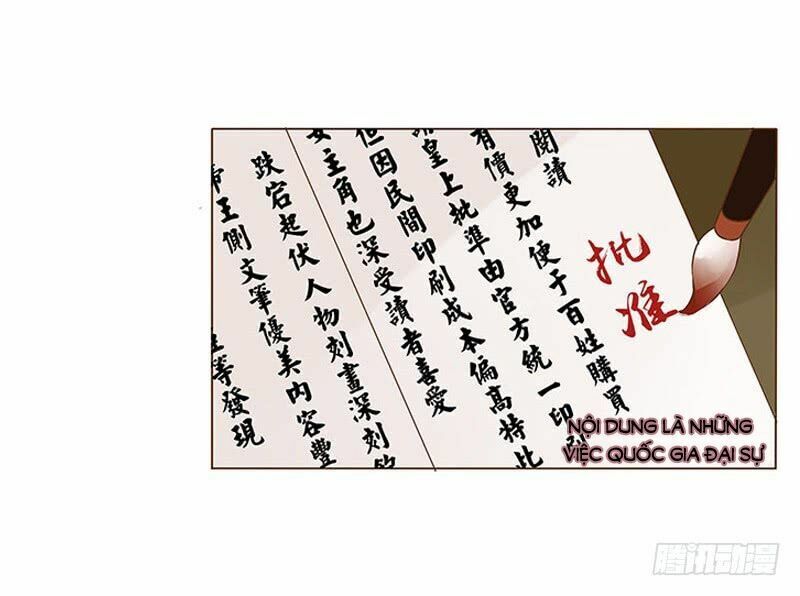 閱讀
有價更加便于百姓購買
皇上批準由官方統一印刷
但因民間印刷成本偏高特此
女主角也深受讀者喜愛
跌宕起伏人物刻畫深刻
帝王側文筆優美內容豐
等發現
批准
NỘI DUNG LÀ NHỮNG
VIỆC QUỐC GIA ĐẠI SỰ
腾讯动漫